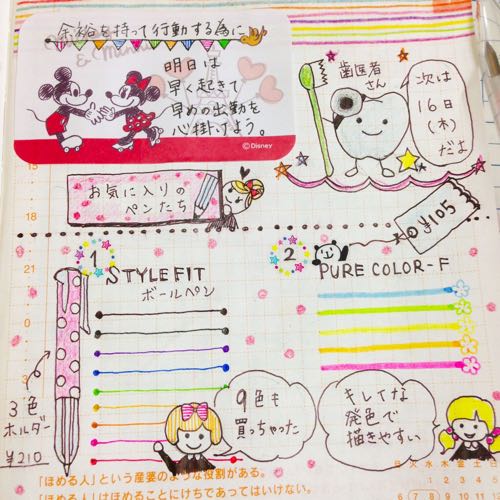 余裕を持って行動する為に
明日は
早く起きて
早めの出勤を
心掛けよう。
©Disney
歯医者
さん
次は
16日
(木)
だよ
お気に入りの
ペンたち
¥105
15
18
21
24
1
STYLEFIT
ボールペン
2
PURE COLOR-F
3色
ホルダー
¥210
9色も
買っちゃった
キレイな
発色で
描きやすい
日 火 水 木 金 土 日
1 2 3 4 5
6 7 8 9 10 11
「ほめる人」という産婆のような役割がある。
「ほめる人」はほめることにけちであってはいけない。